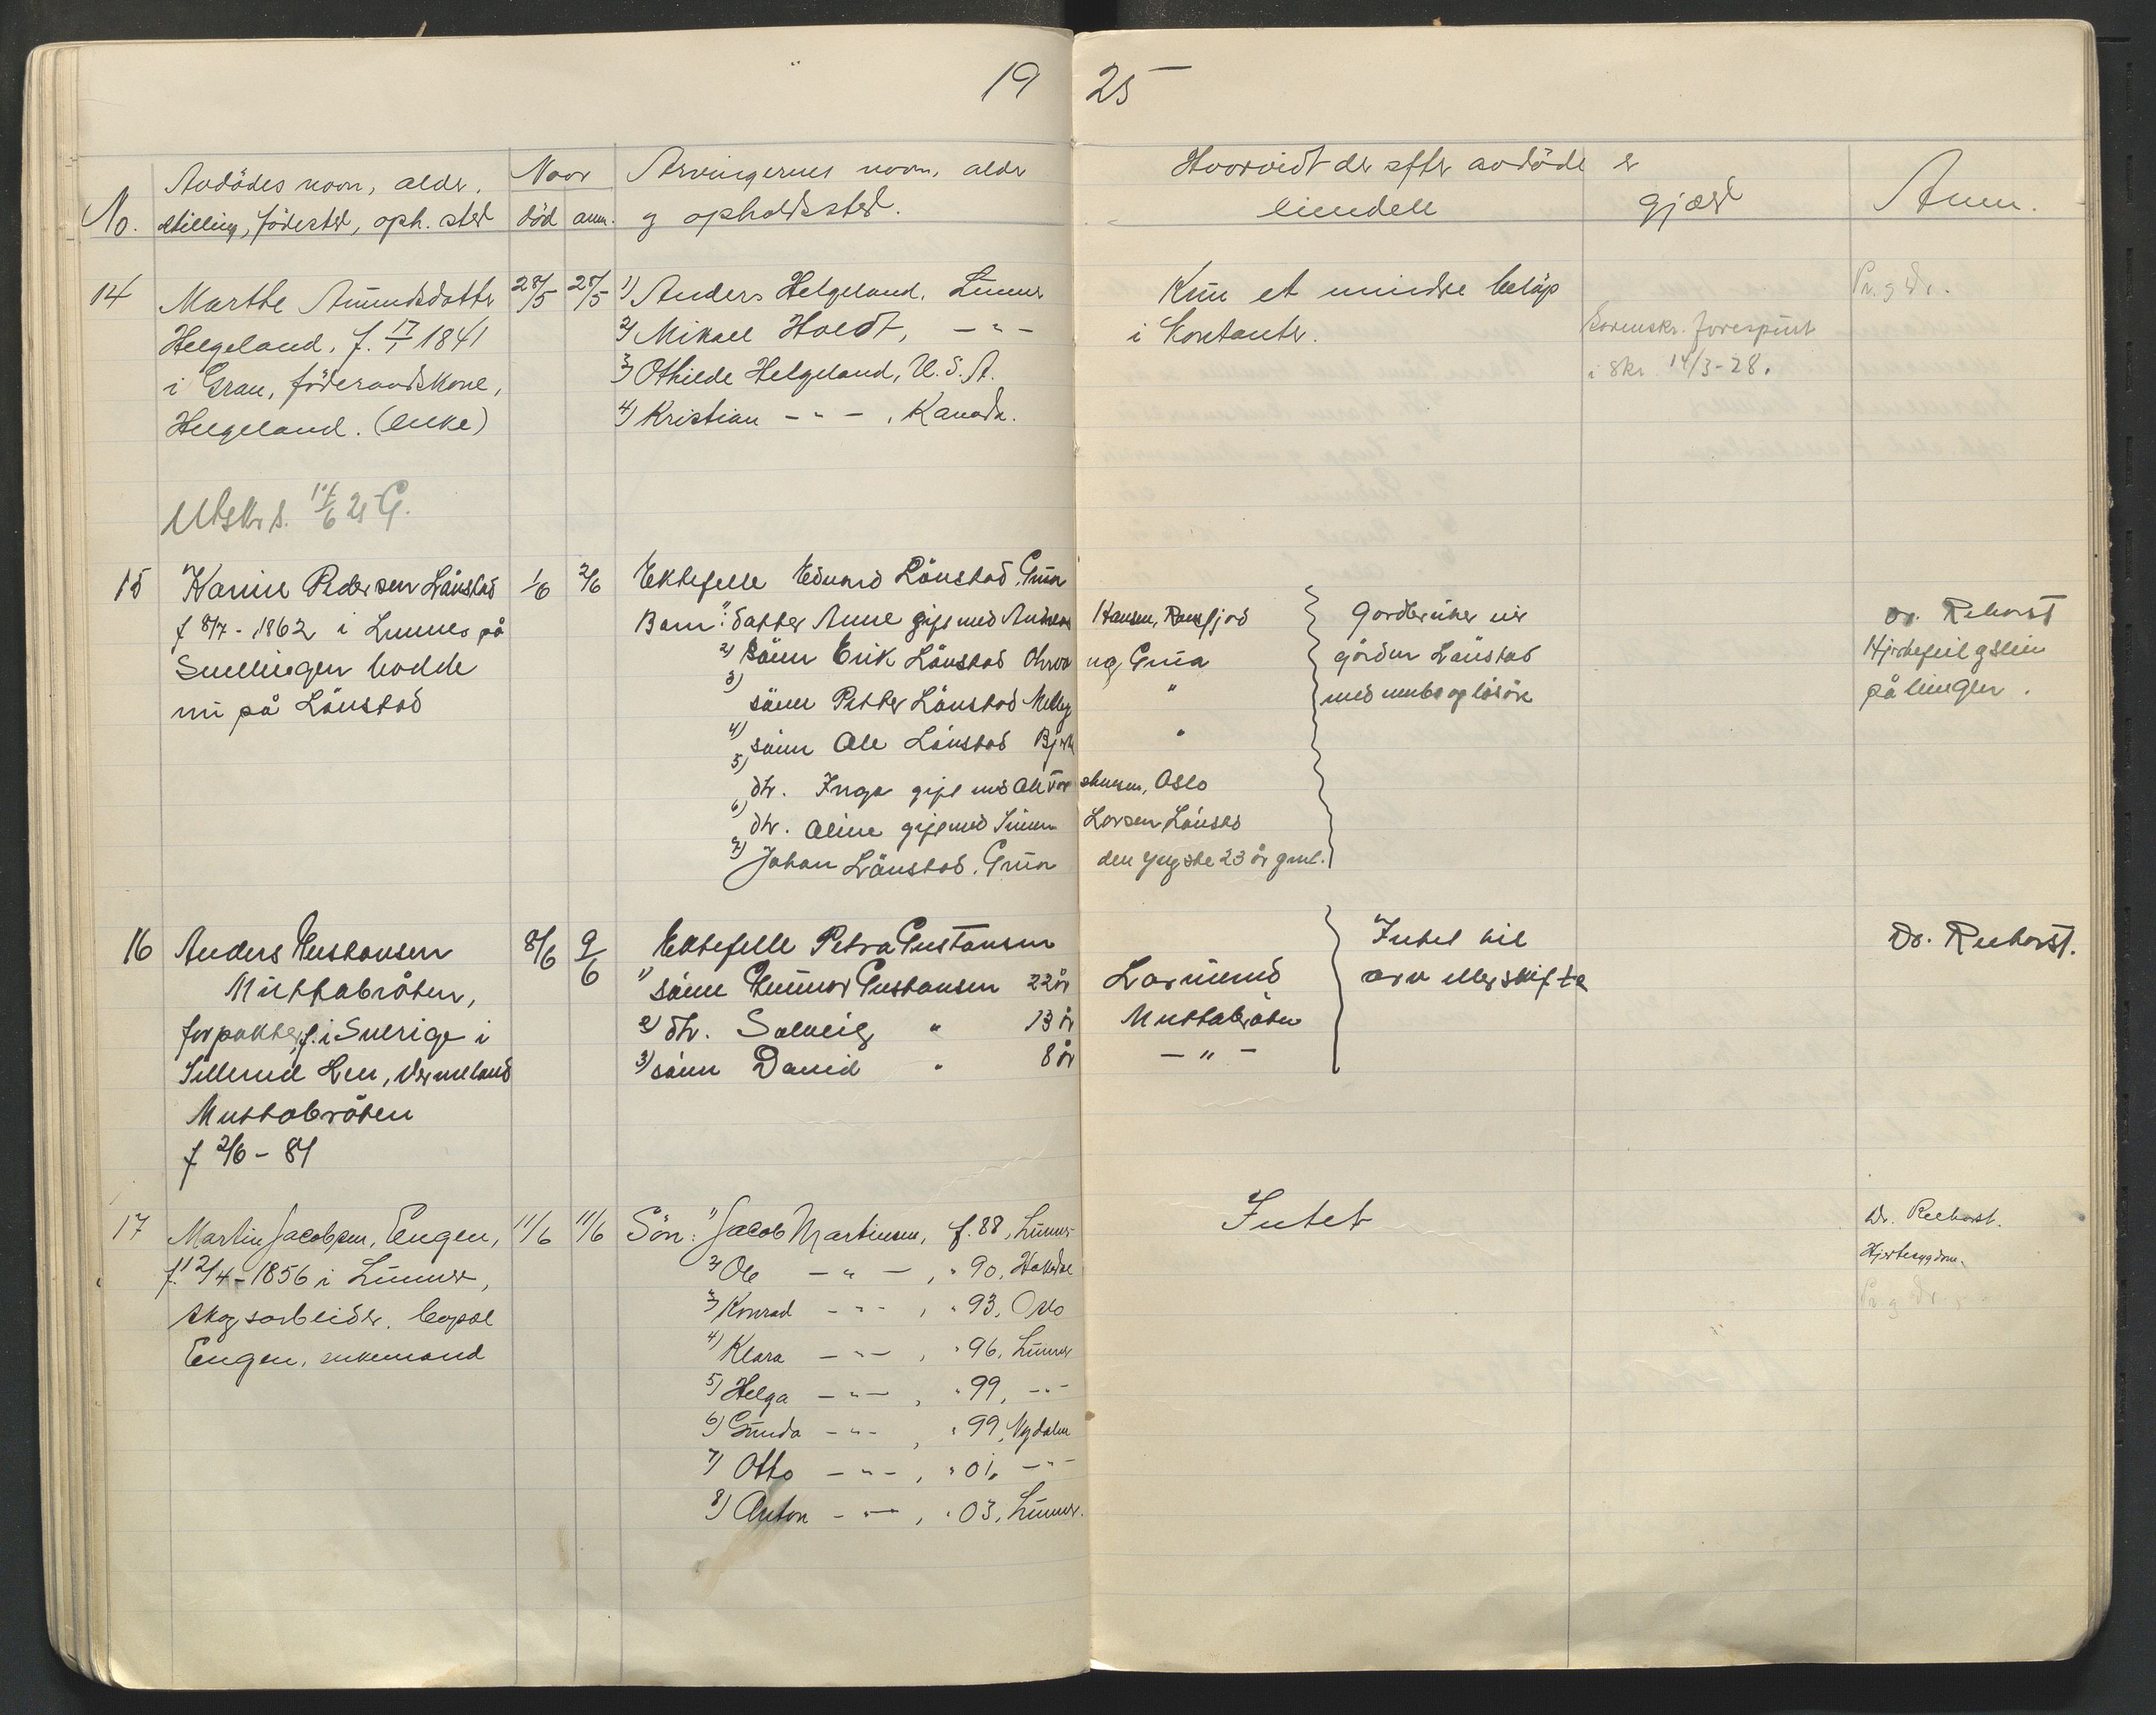 19 25
No. Avdödes navn, alder, stilling, födested, oph. sted
Naar död anm.
Arvingernes navn, alder og opholdssted.
Hvorvidt der efter avdöde er
eiendele
gjæld
Anm.
14
Marthe Amundsdatter
Helgeland, f. 17/1 1841
i Gran, föderaadskone,
Helgeland. (enke)
28/5 28/5
1) Anders Helgeland, Lunner
2) Mikael Holdt, - " -
3) Othilde Helgeland, U.S.A.
4) Kristian - " - , Kanada.
Kun et mindre beløp
i kontanter.
Sorenskr. forespurt
i skr. 14/3-28.
Utskr. s.
15
Karine Pedersen Lånstad
f 8/7 - 1862 i Lunner på
bodde
nu på Lånstad
1/6 2/6
Ektefelle Edvard Lånstad, Grua
Barn: 1) datter Anne gift med Andreas Hansen,
2) sönn Erik Lånstad Grua
3) sönn Petter Lånstad "
4) sönn Ole Lånstad "
5) dtr. Inga gift med Ole Oslo
6) dtr. Aline gift med Simen Larsen Lånstad
7) Johan Lånstad, Grua den yngste 23 år gml.
Gardbruker
gården Lånstad
med innbo og lösöre
Dr. Rehorst
Hjertefeil og slim
på lungen.
16
Anders Gustavsen
Muttabråten,
forpakter, f. i Sverige i
Sillerud Len, Vermeland
Muttabråten
f 2/6 - 81
8/6 9/6
Ektefelle Petra Gustavsen
1) sönn Gunnar Gustavsen 22 år
2) dtr. Solveig " 13 år Muttabråten
3) sönn David " 8 år - " -
Intet til
arv eller skifte
Dr. Reehorst.
17
Martin Jacobsen, Engen,
f. 12/4 - 1856 i Lunner,
skogsarbeider, bopæl
Engen, enkemand
11/6 11/6
Sön: 1) Jacob Martinsen, f. 88, Lunner
2) Ole - " - , " 90, Hakedal
3) Konrad - " - , " 93, Oslo
4) Klara - " - , " 96, Lunner
5) Helga - " - , " 99, - " -
6) Gunda - " - , " 99, Nydalen
7) Otto - " - , " 01, - " -
8) Anton - " - , " 03, Lunner.
Intet
Dr. Reehorst.
Hjertesygdom.